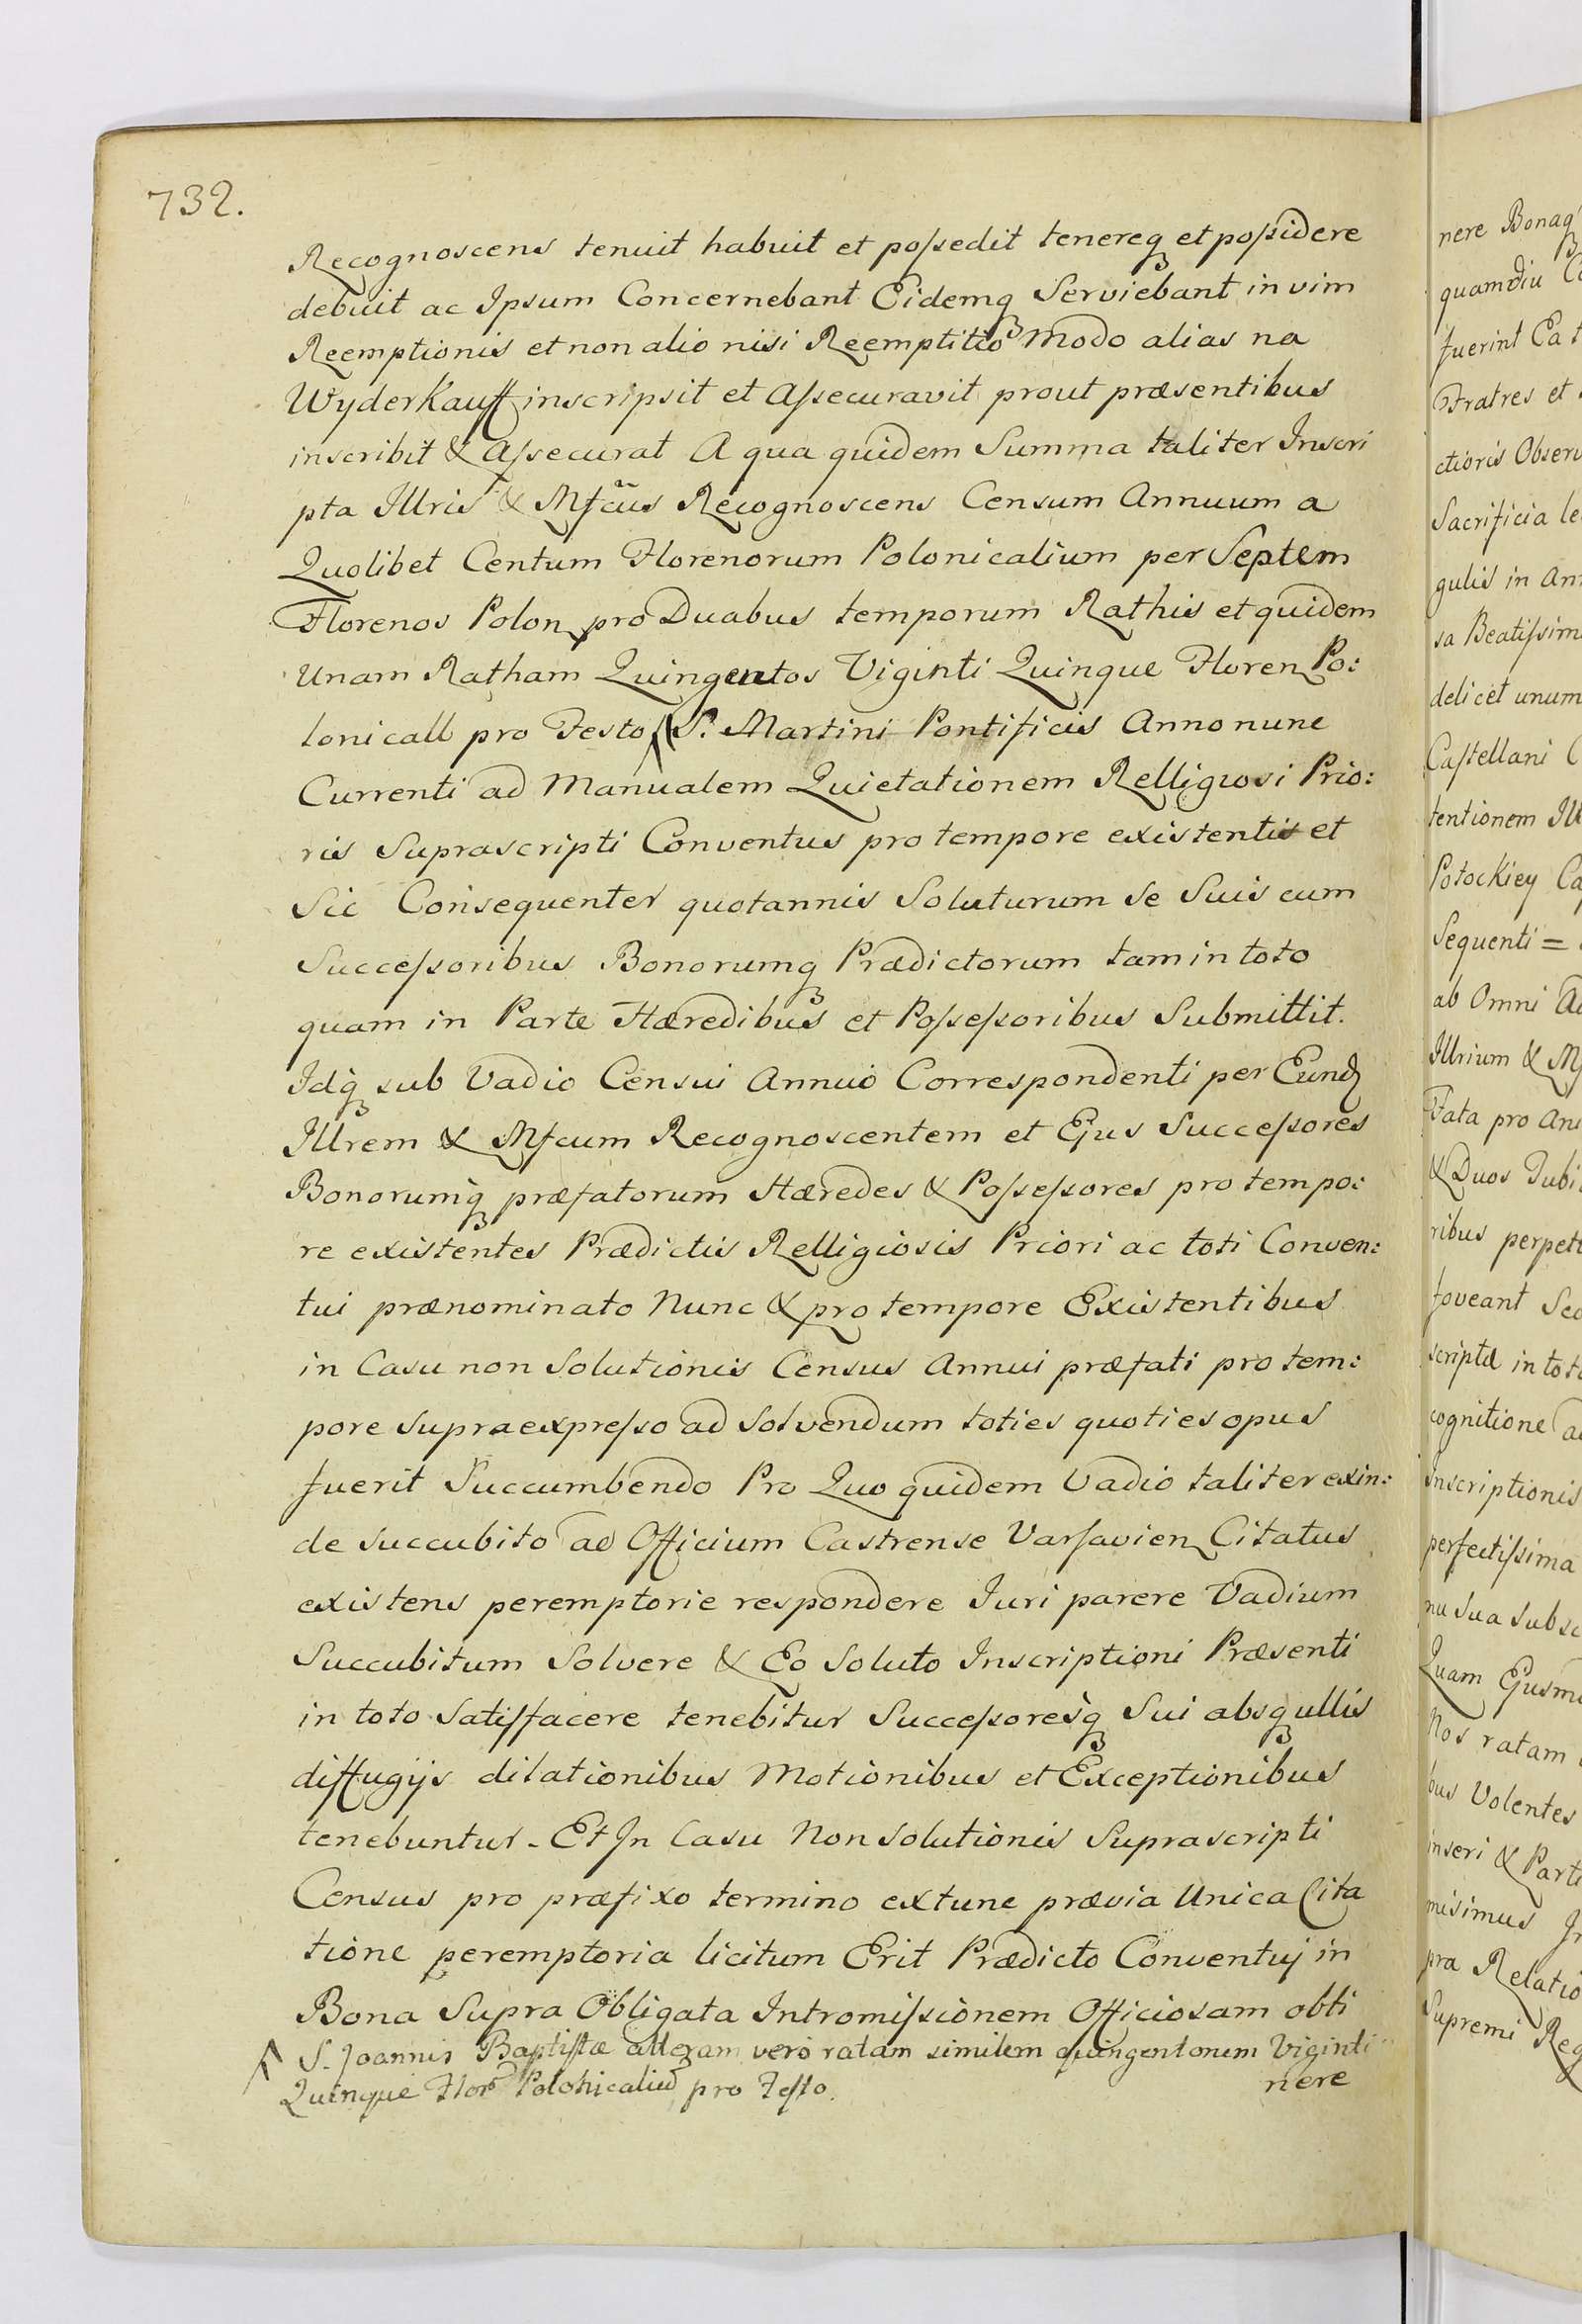 732.
Recognoscens tenuit habuit et poſsedit tenereq₃ et poſsidere
debuit ac Ipsum Concernebant Eidemq₃ Serviebant in vim
Reemptionis et non alio nisi Reemptitio modo alias na
Wyderkauff inscripsit et Aſsecuravit prout præsentibus
inscribit & Aſsecurat A qua quidem Summa taliter Inscri
pta Illris & Mfcus Recognoscens Censum Annuum a
Quolibet Centum Florenorum Polonicalium per Septem
Florenos Polon pro Duabus temporum Rathis et quidem
Unam Ratham Quingentos Viginti Quinque Floren Po:
lonicall pro Festo /\ S. Martini Pontificis Anno nunc
Currenti ad Manualem Quietationem Relligiosi Prio:
ris Suprascripti Conventus pro tempore existentis et
Sic Consequenter quotannis Soluturum se Suis cum
Succeſsoribus Bonorumq₃ Prædictorum tam in toto
quam in Parte Hæredibus et Poſseſsoribus Submittit.
Idq₃ sub Vadio Censui Annuo Correspondenti per Eund
Illrem & Mfcum Recognoscentem et Ejus Succeſsores
Bonorumq₃ præfatorum Hæredes & Poſseſsores pro tempo:
re existentes Prædictis Relligiosis Priori ac toti Conven:
tui prænominato Nunc & pro tempore Existentibus
in Casu non Solutionis Census Annui præfati pro tem:
pore supraexpreſso ad solvendum toties quoties opus
fuerit Succumbendo Pro Quo quidem Vadio taliter exin:
de succubito ad Officium Castrense Varſavien Citatus
existens peremptorie respondere Iuri parere Vadium
Succubitum Solvere & Eo Soluto Inscriptioni Præsenti
in toto Satiſfacere tenebitur Succeſsoresq₃ Sui absq₃ ullis
diffugijs dilationibus Motionibus et Exceptionibus
tenebuntur - Et In Casu Non Solutionis Suprascripti
Census pro præfixo termino extunc prævia Unica Cita
tione peremptoria licitum Erit Prædicto Conventuj in
Bona Supra Obligata Intromiſsionem Officiosam obti
/\ S. Joannis Baptiſtæ alteram vero ratam similem quingentorum Viginti
Quinque Flor Polonicaliũ pro Feſto.
nere
nere Bonaq₃
quamdiu
fuerint Ea
Fratres et
ctioris Observ
Sacrificia le
gulis in An
sa Beatiſsim
delicet unum
Caſtellani
tentionem Ill
Potockiey Ca
Sequenti =
ab Omni
Illrium &
Fata pro An
& Duos
ribus perpet
foveant Sec
scriptæ in tot
cognitione
Inscriptionis
perfectiſsima
nu Sua Subsc
Quam Ejusm
Nos ratam
bus Volentes
inseri & Part
misimus
pra Relatio
Supremi Reg